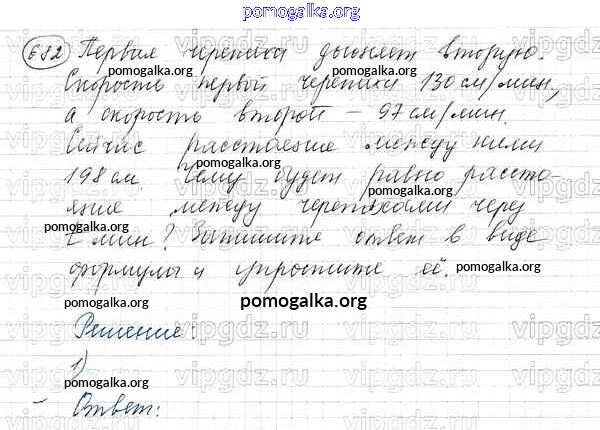 pomogalka.org
682 Первая черепаха догоняет вторую.
pomogalka.org pomogalka.org
Скорость первой черепахи 130 см/мин,
а скорость второй – 97 см/мин.
pomogalka.org
Сейчас расстояние между ними
pomogalka.org
198 см. Чему будет равно рассто-
pomogalka.org
яние между черепахами через
t мин? Запишите ответ в виде
формулы и упростите её.
pomogalka.org pomogalka.org
pomogalka.org
Решение:
1)
pomogalka.org
Ответ:
vipgdz.ru